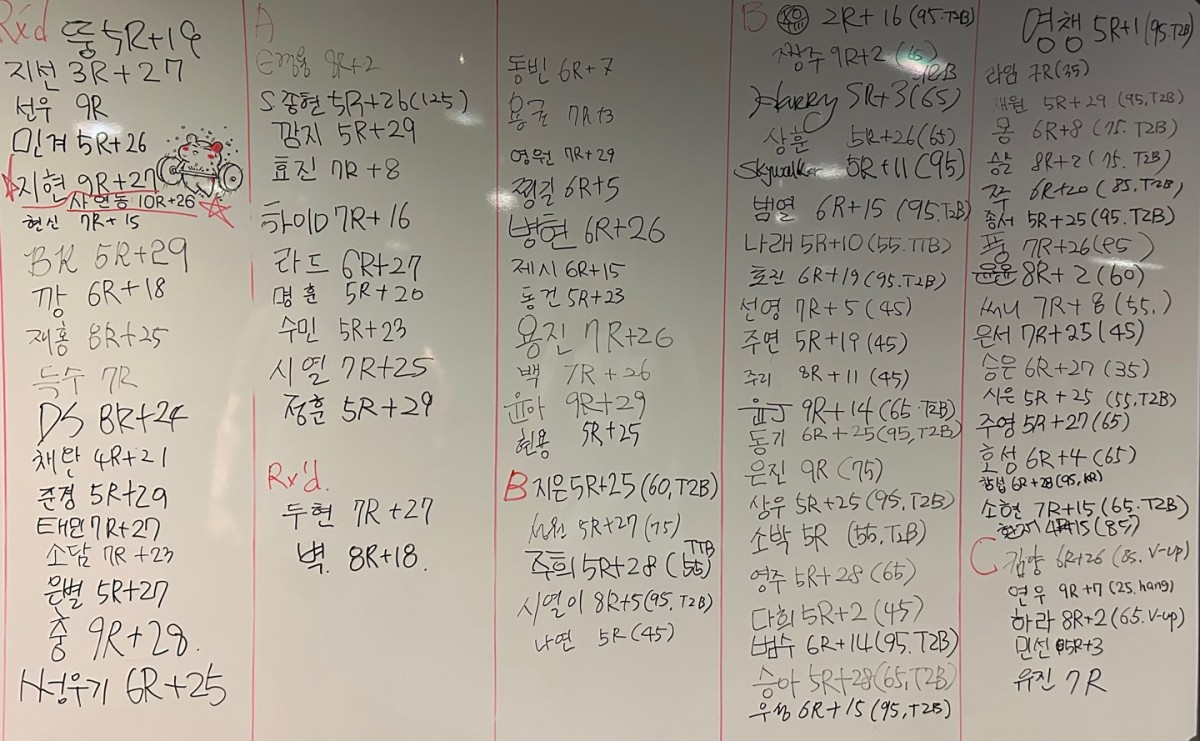 Rx'd 뚱 5R+19
지선 3R+27
선우 9R
민겨 5R+26
지현 9R+27
사연동 10R+26
현신 7R+15
BK 5R+29
깡 6R+18
재홍 8R+25
득수 7R
DS 8R+24
채란 4R+21
준경 5R+29
태민 7R+27
소담 7R+23
은별 5R+27
충 9R+28
서성우기 6R+25
A
9R+2
S.종현 5R+26(125)
깜지 5R+29
효진 7R+8
하이D 7R+16
라드 6R+27
명훈 5R+20
수민 5R+23
시열 7R+25
정훈 5R+29
Rx'd.
두현 7R+27
벽. 8R+18.
동빈 6R+7
용균 7R+3
영원 7R+29
찡길 6R+5
병현 6R+26
제시 6R+15
동건 5R+23
용진 7R+26
백 7R+26
윤아 9R+29
현용 5R+25
B 지은 5R+25 (60,T2B)
5R+27 (75)
주희 5R+28 (55) TTB
시열이 8R+5(95.T2B)
나연 5R (45)
B 2R+16 (95.T2B)
짱주 9R+2 (65)
Harry 5R+3(65)
상훈 5R+26(65)
Skywalker 5R+11 (95)
범열 6R+15 (95.T2B)
나래 5R+10 (55.TTB)
효진 6R+19(95.T2B)
선영 7R+5 (45)
주연 5R+19 (45)
주리 8R+11 (45)
윤J 9R+14(65.T2B)
동기 6R+25(95,T2B)
은진 9R (75)
상우 5R+25 (95,T2B)
소박 5R (55,T2B)
영주 5R+28 (65)
다희 5R+2 (45)
범수 6R+14(95.T2B)
승아 5R+28(65,T2B)
우성 6R+15 (95,T2B)
영챙 5R+1 (95.T2B)
라임 7R(35)
재원 5R+29 (95,T2B)
몽 6R+8 (75.T2B)
8R+2 (75.T2B)
쭈 6R+20 (85,T2B)
종서 5R+25(95.T2B)
풍 7R+26(95)
윤윤 8R+2 (60)
써니 7R+8 (55.)
은서 7R+25(45)
승은 6R+27 (35)
시은 5R+25 (55,T2B)
주영 5R+27(65)
호성 6R+4 (65)
창섭 6R+28(95, KR)
소현 7R+15(65.T2B)
4R+15 (85)
C 김량 6R+26 (85. V-up)
연우 9R+7 (25.hang)
하라 8R+2 (65.V-up)
민선 5R+3
유진 7R